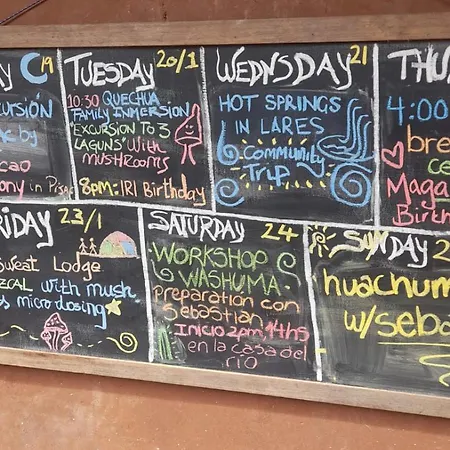 19
ny in Pisa
TUESDAY 20/1
10:30 QUECHUA
FAMILY INMERSION
"EXCURSION TO 3
LAGUNS" WITH
MUSHROOMS
8pm: IRI Birthday
WEDNSDAY 21
HOT SPRINGS
IN LARES
Community
Trip
THU
4:00
bre
ce
Maga
Birth
RIDAY 23/1
Sweat Lodge
with mush
microdosing
SATURDAY 24
WORKSHOP
WASHUMA
preparation con
Sebastian
Inicio 2pm 14hs
en la casa del
río
SUNDAY 2
huachum
w/seba